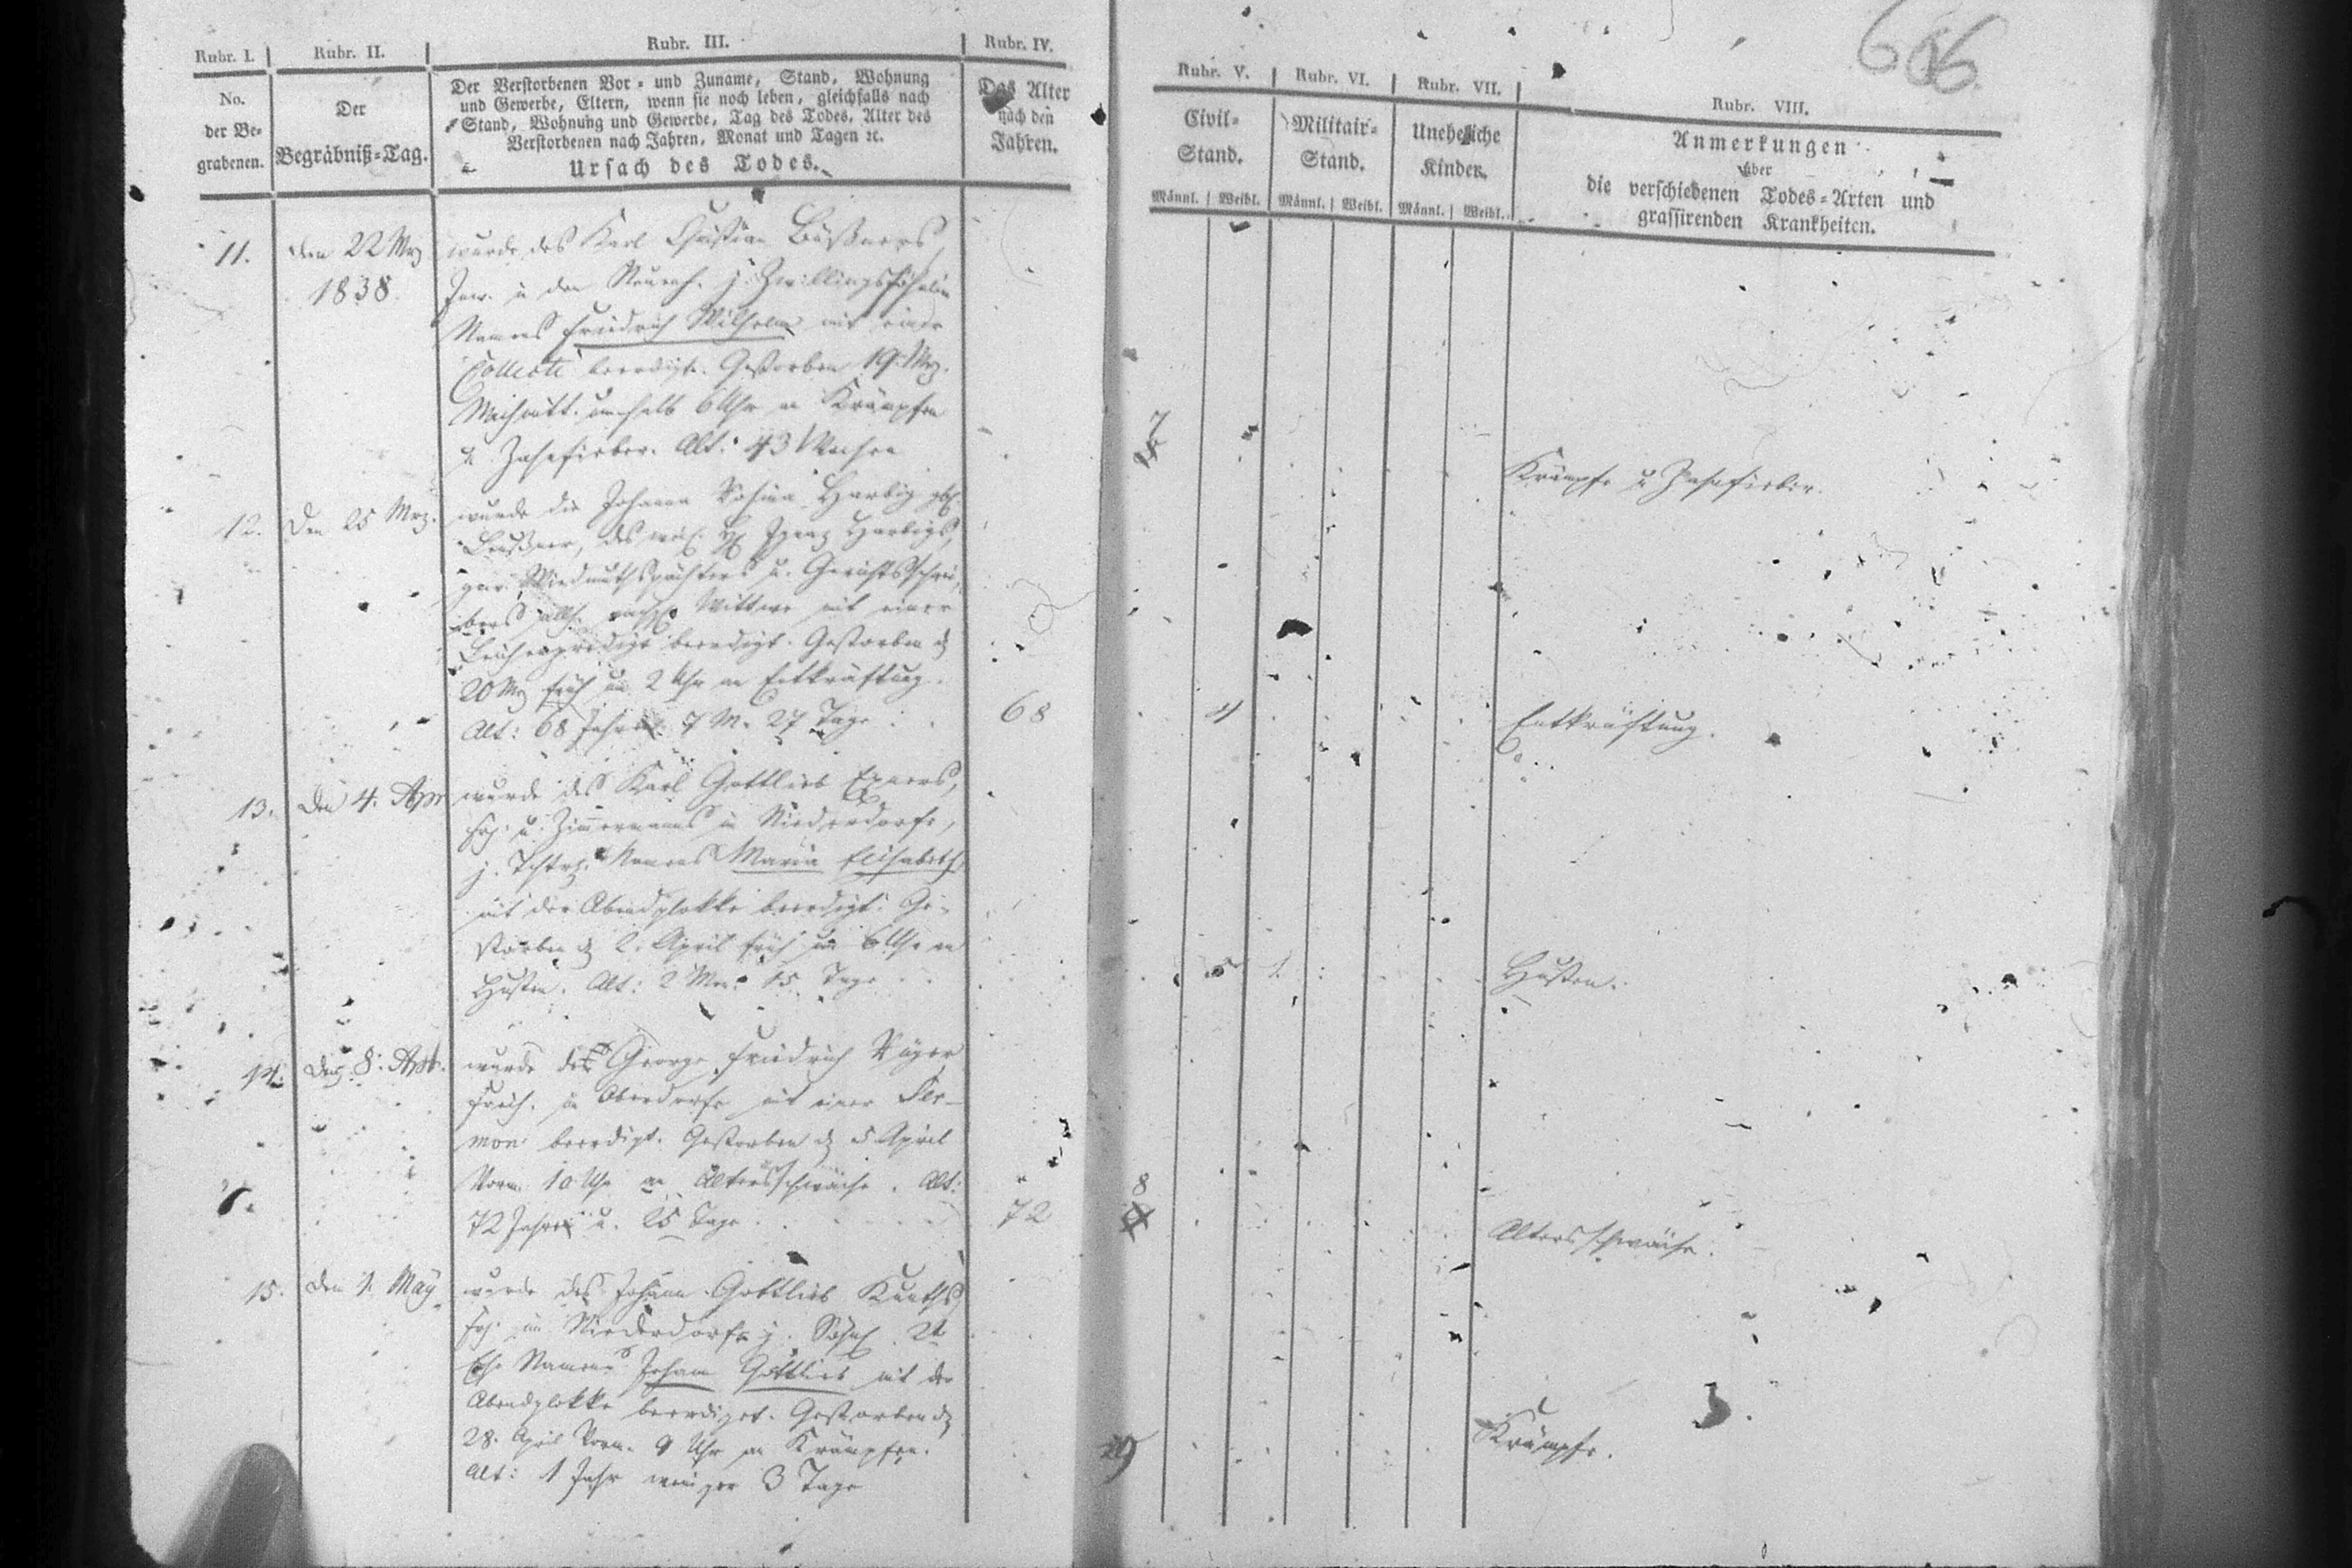 686.
Rubr. I. Rubr. II. Rubr. III. Rubr. IV.
No. der Be=grabenen.
Der Begräbniß=Tag.
Der Verstorbenen Vor= und Zuname, Stand, Wohnung
und Gewerbe, Eltern, wenn sie noch leben, gleichfalls nach
Stand, Wohnung und Gewerbe, Tag des Todes, Alter des
Verstorbenen nach Jahren, Monat und Tagen ꝛc.
Ursach des Todes.
Das Alter
nach den
Jahren.
Rubr. V. Rubr. VI. Rubr. VII. Rubr. VIII.
Civil=
Stand.
Militair=
Stand.
Uneheliche
Kinder.
Anmerkungen
über
die verschiedenen Todes=Arten und
grassirenden Krankheiten.
Männl. Weibl. Männl. Weibl. Männl. Weibl.
11. den 22 Mrz wurde des Karl Christian
1838. j. Zwillingssöhnlein
Namens Friedrich Wilhelm mit einer
Collecte beerdigt. Gestorben 19. Mrz.
Nachmitt. 6 Uhr an Krämpfen
u. Alt: 43 Wochen
7
Krämpfe u.
12. Den 25 Mrz. wurde die Johanna Rosina Harbig
des Ignaz Harbigs,
u. Gerichtsschrei=
bers Wittwe mit einer
Leichenpredigt beerdigt. Gestorben
20 Mrz früh um 2 Uhr an Entkräftung.
Alt: 68 Jahre 7 M. 27 Tage
68 4 Entkräftung.
13. Den 4. Apr wurde des Karl Gottlieb Exners,
u. Zimmermanns in Niederdorfe,
j. Namens Maria Elisabeth
mit der Abendglokke beerdigt. Ge=
storben 2. April früh um 6 Uhr an
Husten. Alt: 2 Mon. 15 Tage
5 1. Husten.
14. Den 8. Apr. wurde der George Friedrich
in Oberdorfe mit einer Ser=
mon beerdigt. Gestorben 5 April
Vorm. 10 Uhr an Altersschwäche. Alt:
72 Jahre u. 25 Tage
72 8 Altersschwäche.
15. Den 1. May wurde des Johann Gottlieb
im Niederdorfe j.
Ehe Namens Johann Gottlieb mit der
Abendglokke beerdiget. Gestorben
28. April Vorm. 9 Uhr an Krämpfen.
Alt: 1 Jahr weniger 3 Tage
Krämpfe.